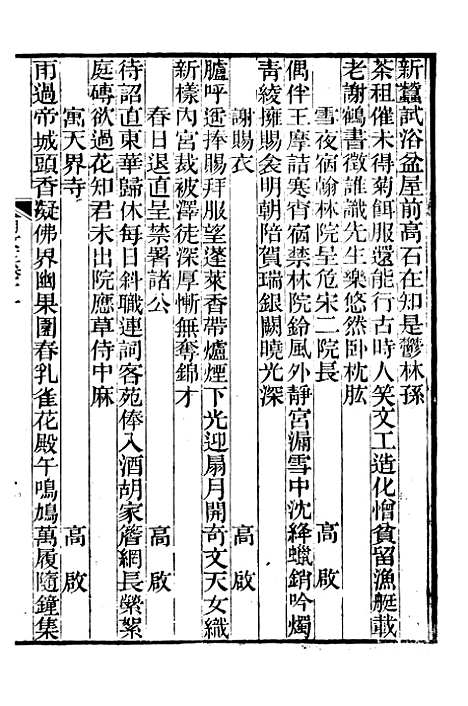 新蠶試浴盆屋前高石在知是鬱林孫
茶租催未得菊餌服還能行古時人笑文工造化憎貧留漁艇載
老謝鶴書徵誰識先生樂悠然卧枕肱
雪夜宿翰林院呈危宋二院長　高啟
偶伴王摩詰寒宵宿禁林院鈴風外靜宮漏雪中沈絳蠟銷吟燭
青綾擁賜衾明朝陪賀瑞銀闕曉光深
謝賜衣　高啟
臚呼遝捧賜拜服望蓬萊香帶爐煙下光迎扇月開奇文天女織
新樣內宮裁被澤徒深厚慚無奪錦才
春日退直呈禁署諸公　高啟
待詔直東華歸休每日斜職連詞客苑俸入酒胡家簷網長縈絮
庭磚欲過花知君未出院應草侍中麻
寓天界寺　高啟
雨過帝城頭香凝佛界幽果園春乳雀花殿午鳴鳩萬履隨鐘集